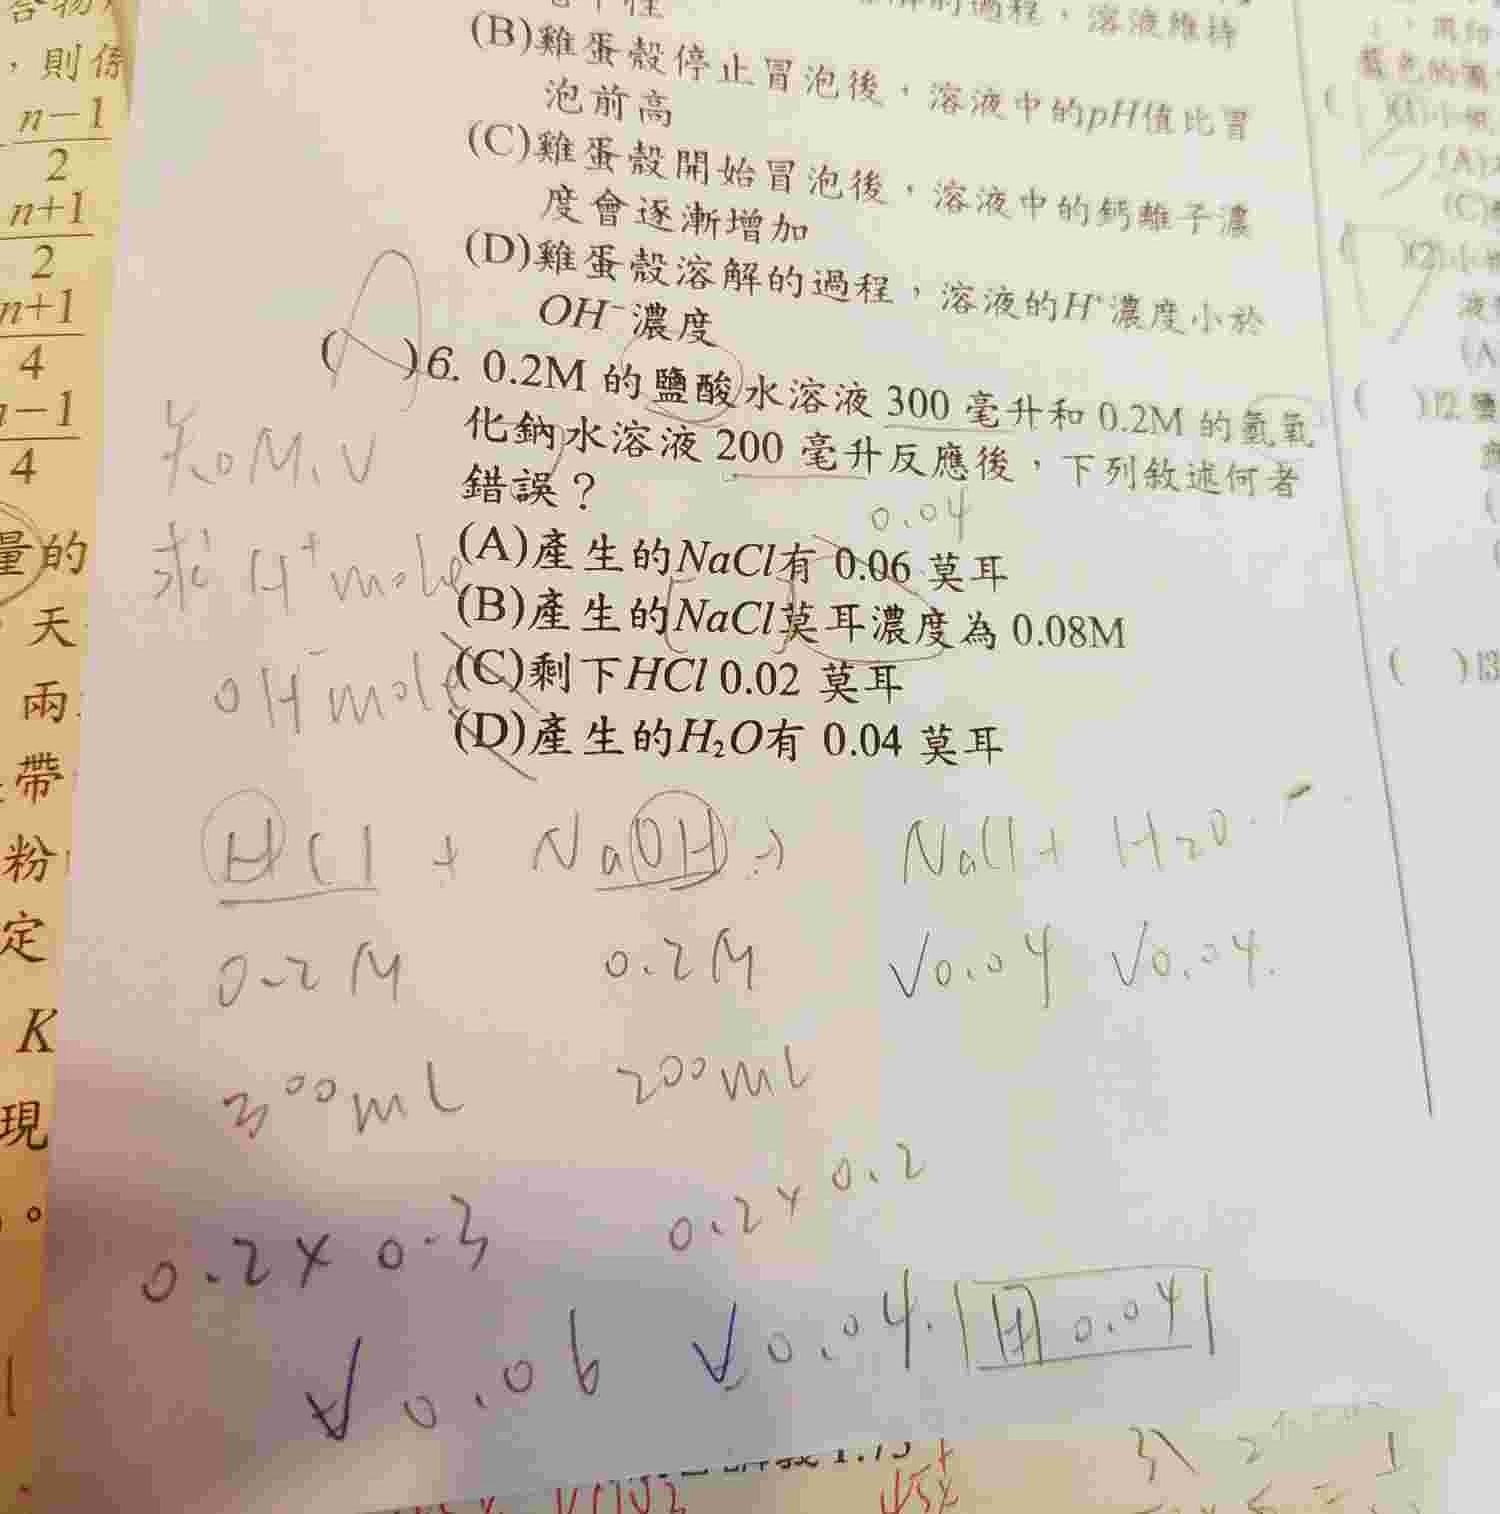 ，則係
n−1
2
n+1
2
n+1
4
n−1
4
量的
天
兩
帶
粉
定
K
現
。
溶液維持
(B)雞蛋殼停止冒泡後，溶液中的pH值比冒
泡前高
(C)雞蛋殼開始冒泡後，溶液中的鈣離子濃
度會逐漸增加
(D)雞蛋殼溶解的過程，溶液的H⁺濃度小於
OH⁻濃度
( A )6. 0.2M 的鹽酸水溶液 300 毫升和 0.2M 的氫氧
化鈉水溶液 200 毫升反應後，下列敘述何者
錯誤？
0.04
(A)產生的NaCl有 0.06 莫耳
(B)產生的NaCl莫耳濃度為 0.08M
(C)剩下HCl 0.02 莫耳
(D)產生的H₂O有 0.04 莫耳
知 M、V
求 H⁺ mole
OH⁻ mole
HCl + NaOH → NaCl + H₂O
0.2M 0.2M √0.04 √0.04
300mL 200mL
0.2×0.3 0.2×0.2
√0.06 √0.04 用 0.04
藍色的
(A)
(C)
(A
( )12.
( )13